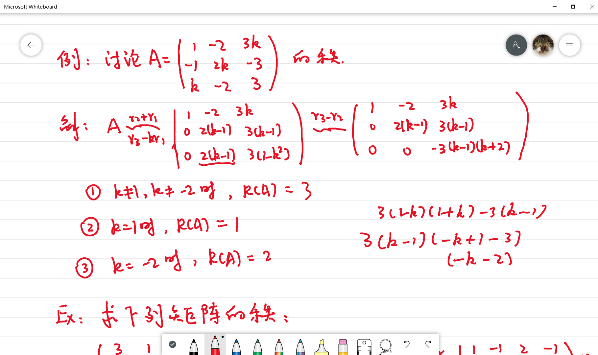 Microsoft Whiteboard
例: 讨论 A = ( 1 -2 3k
-1 2k -3
k -2 3 ) 的秩.
解: A r2+r1 r3-kr1 ( 1 -2 3k
0 2(k-1) 3(k-1)
0 2(k-1) 3(1-k²) ) r3-r2 ( 1 -2 3k
0 2(k-1) 3(k-1)
0 0 -3(k-1)(k+2) )
① k≠1, k≠-2时, R(A) = 3
3(1-k)(1+k)-3(k-1)
② k=1时, R(A) = 1
3(k-1)(-k+1-3)
(-k-2)
③ k=-2时, R(A) = 2
Ex: 求下列矩阵的秩:
( 3 1
1 -1 2 -1